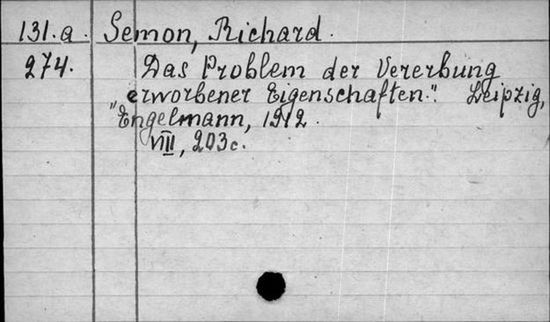 131.a. Semon, Richard.
274. Das Problem der Vererbung
erworbener Eigenschaften." Leipzig,
"Engelmann, 1912.
VIII, 203c.